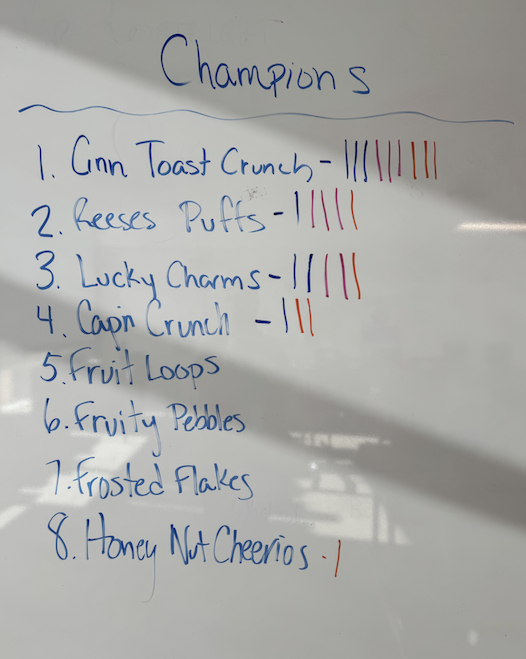 Champions
1. Cinn Toast Crunch - ||||||||||
2. Reeses Puffs - |||||
3. Lucky Charms - ||||||
4. Cap'n Crunch - |||
5. Fruit Loops
6. Fruity Pebbles
7. Frosted Flakes
8. Honey Nut Cheerios - |